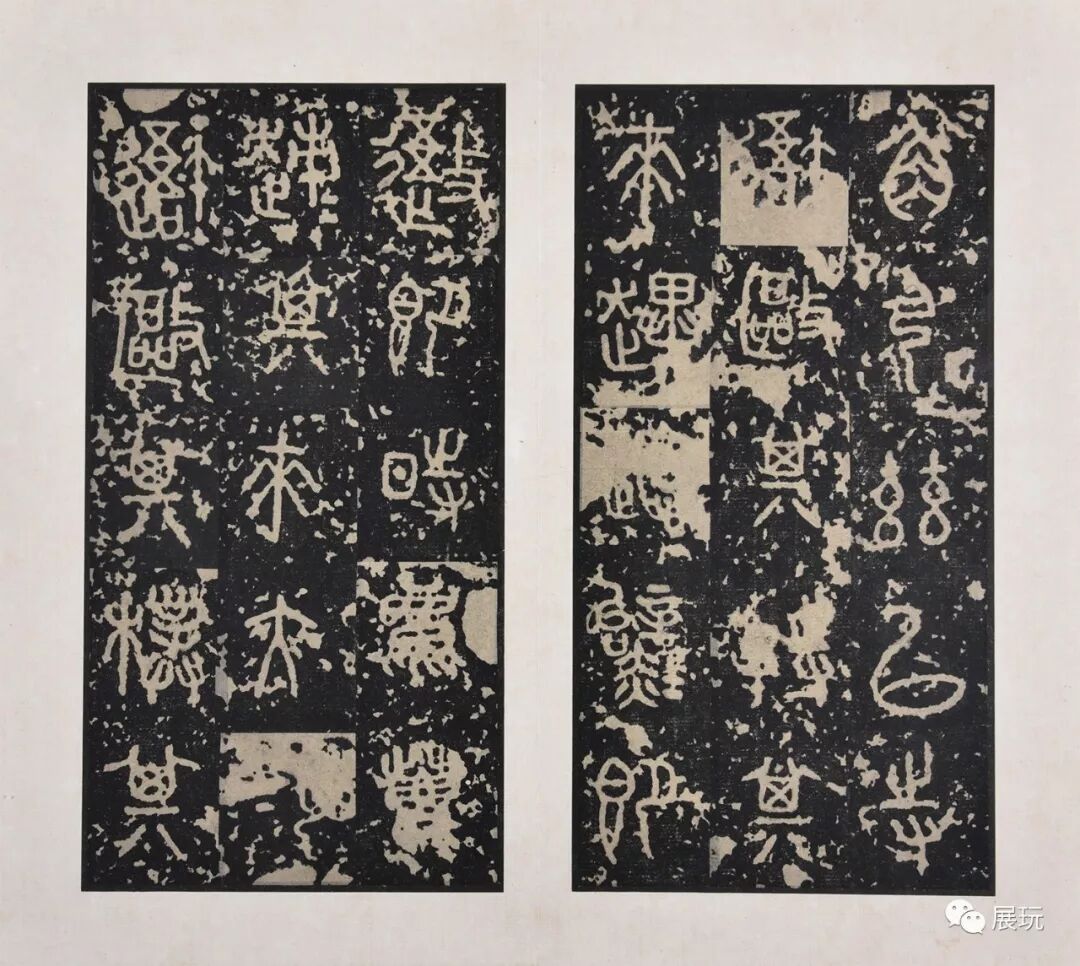 角弓茲以寺
吾敺其特其
來趩即
禦即時麀鹿
趚其來大次
吾敺其樸其
展玩